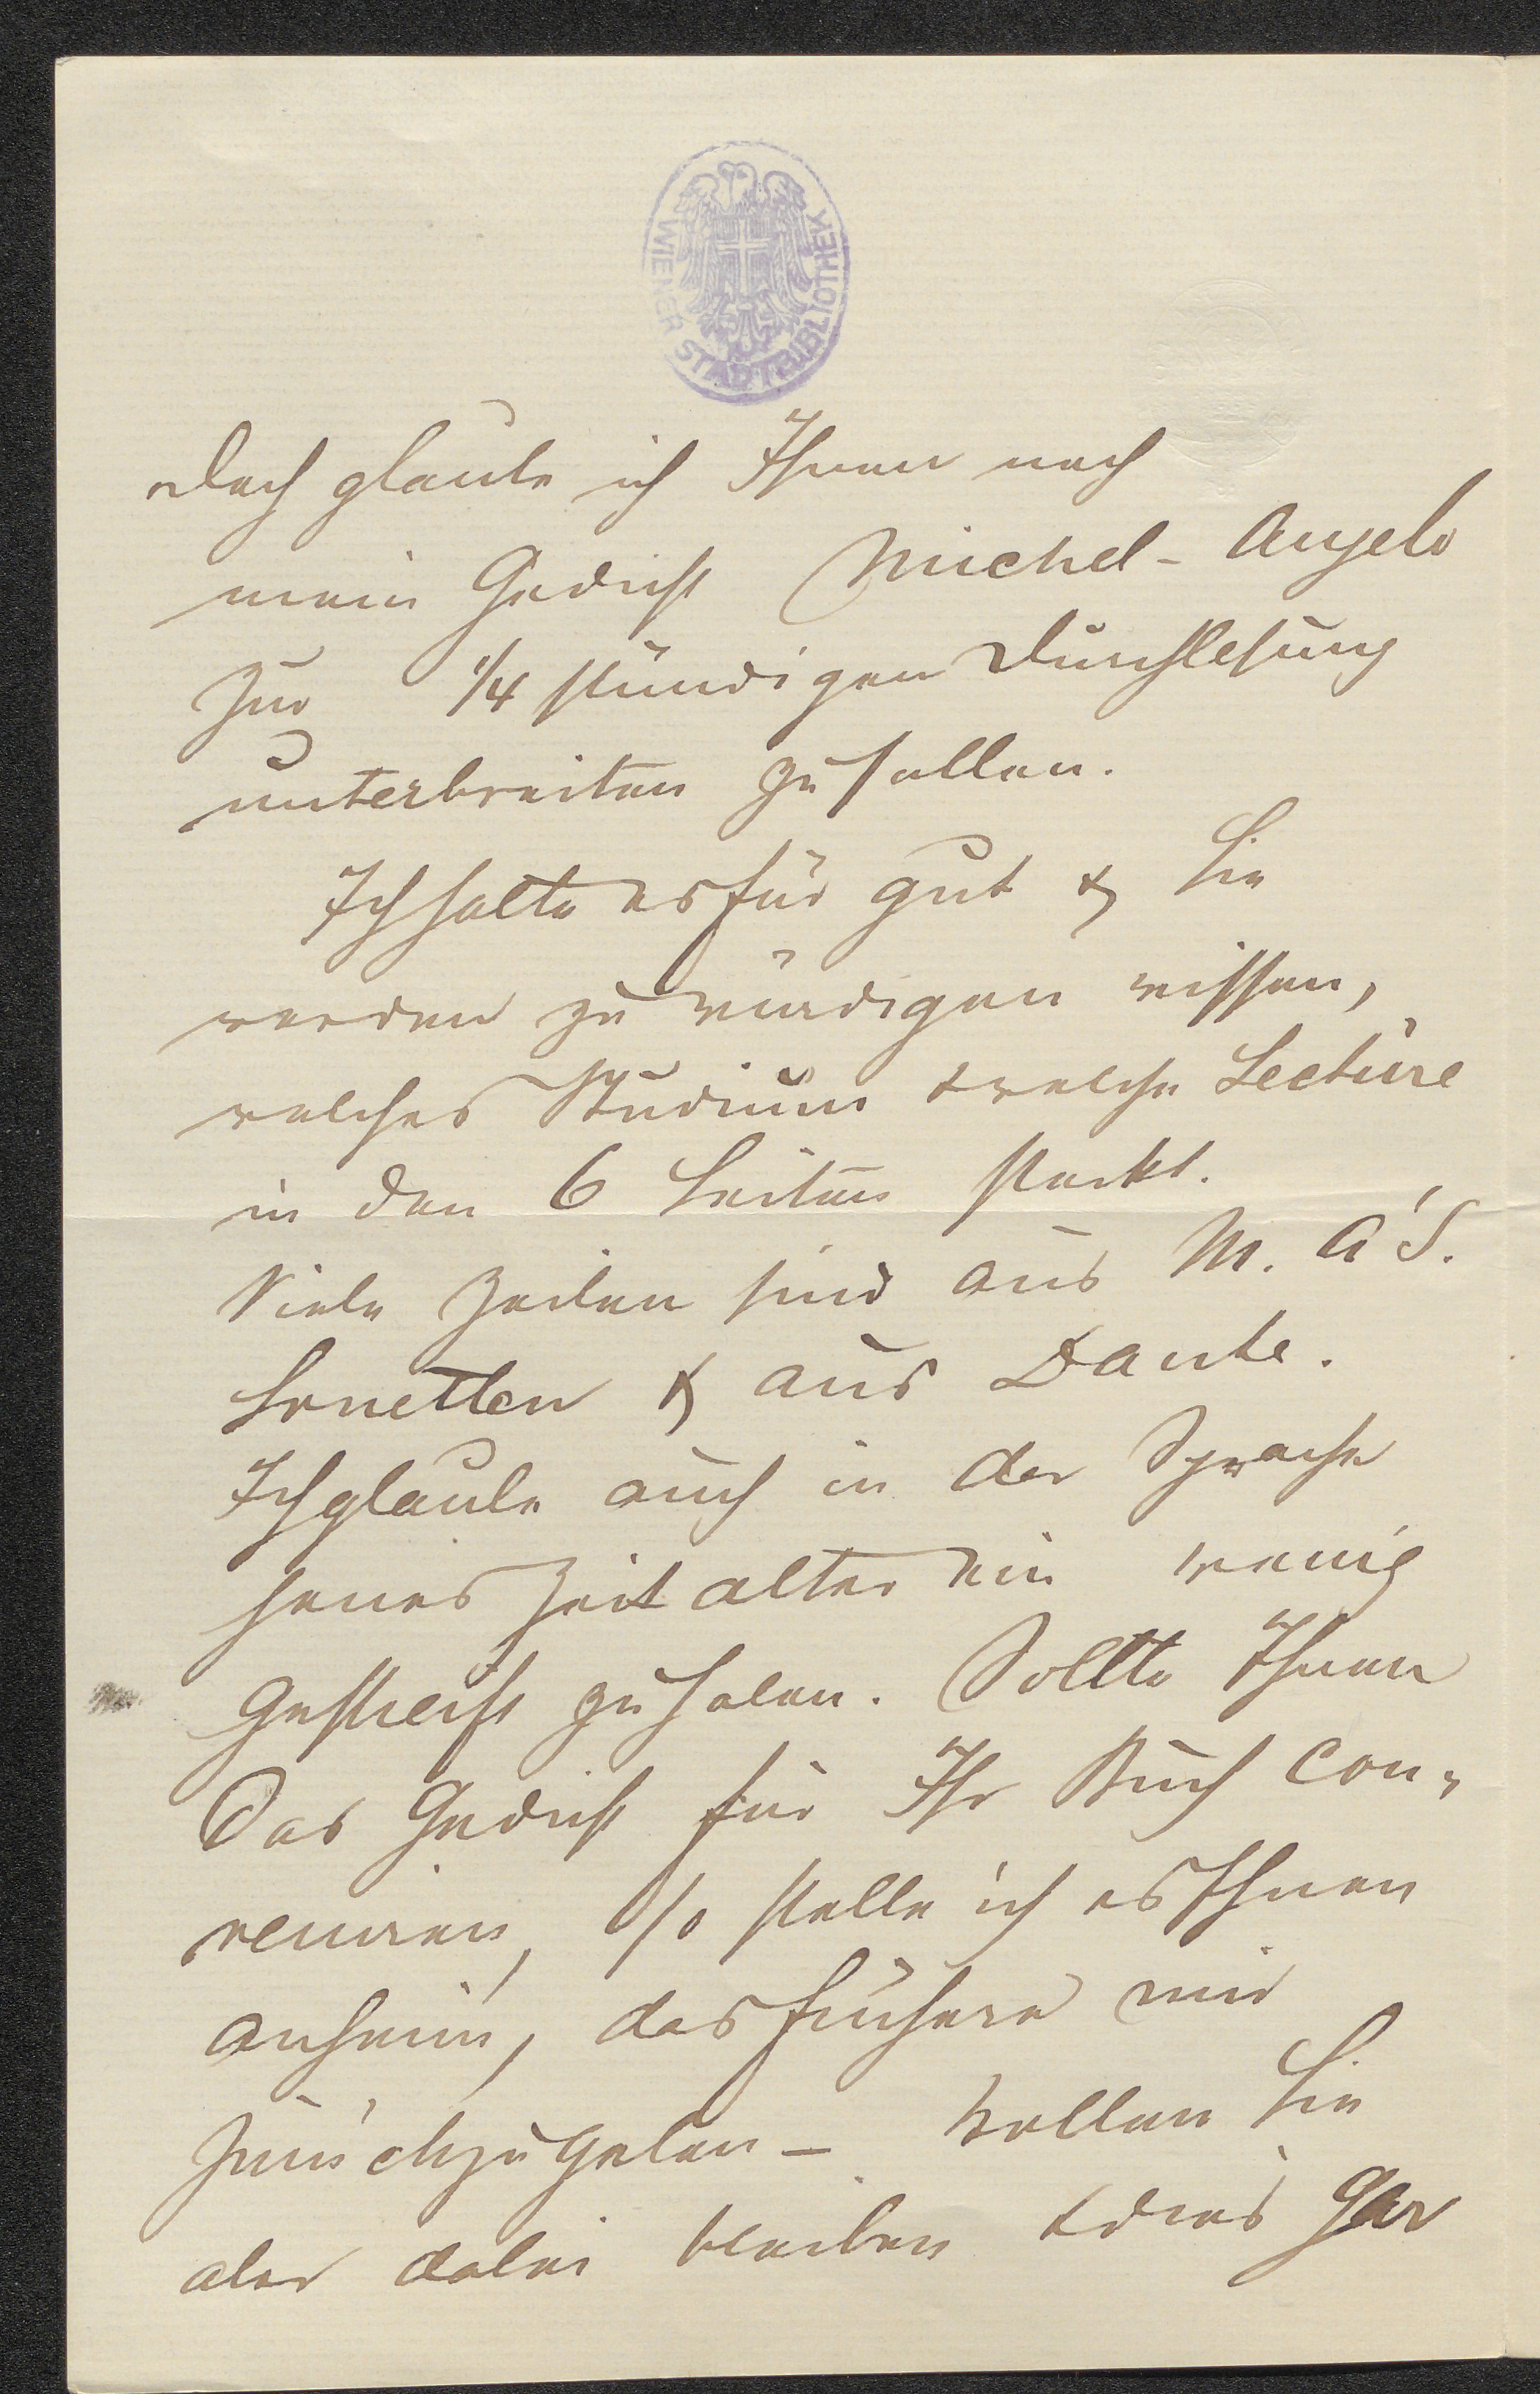 WIENER STADTBIBLIOTHEK
doch glaube ich Ihnen noch
mein Gedicht Michel-Angelo
zur 1/4 stündigen Durchlesung
unterbreiten zu sollen.
Ich halte es für gut & Sie
werden zu würdigen wissen,
welches Studium & welche Lectüre
in den 6 Seiten steckt.
Viele Zeilen sind aus M. A'S.
Sonetten & aus Dante.
Ich glaube auch in der Sprache
jenes Zeitalter ein wenig
gestreift zu haben. Sollte Ihnen
das Gedicht für Ihr Buch con-
veniren, so stelle ich es Ihnen
anheim, das frühere mir
zurückzugeben – wollen Sie
aber dabei bleiben & dies gar